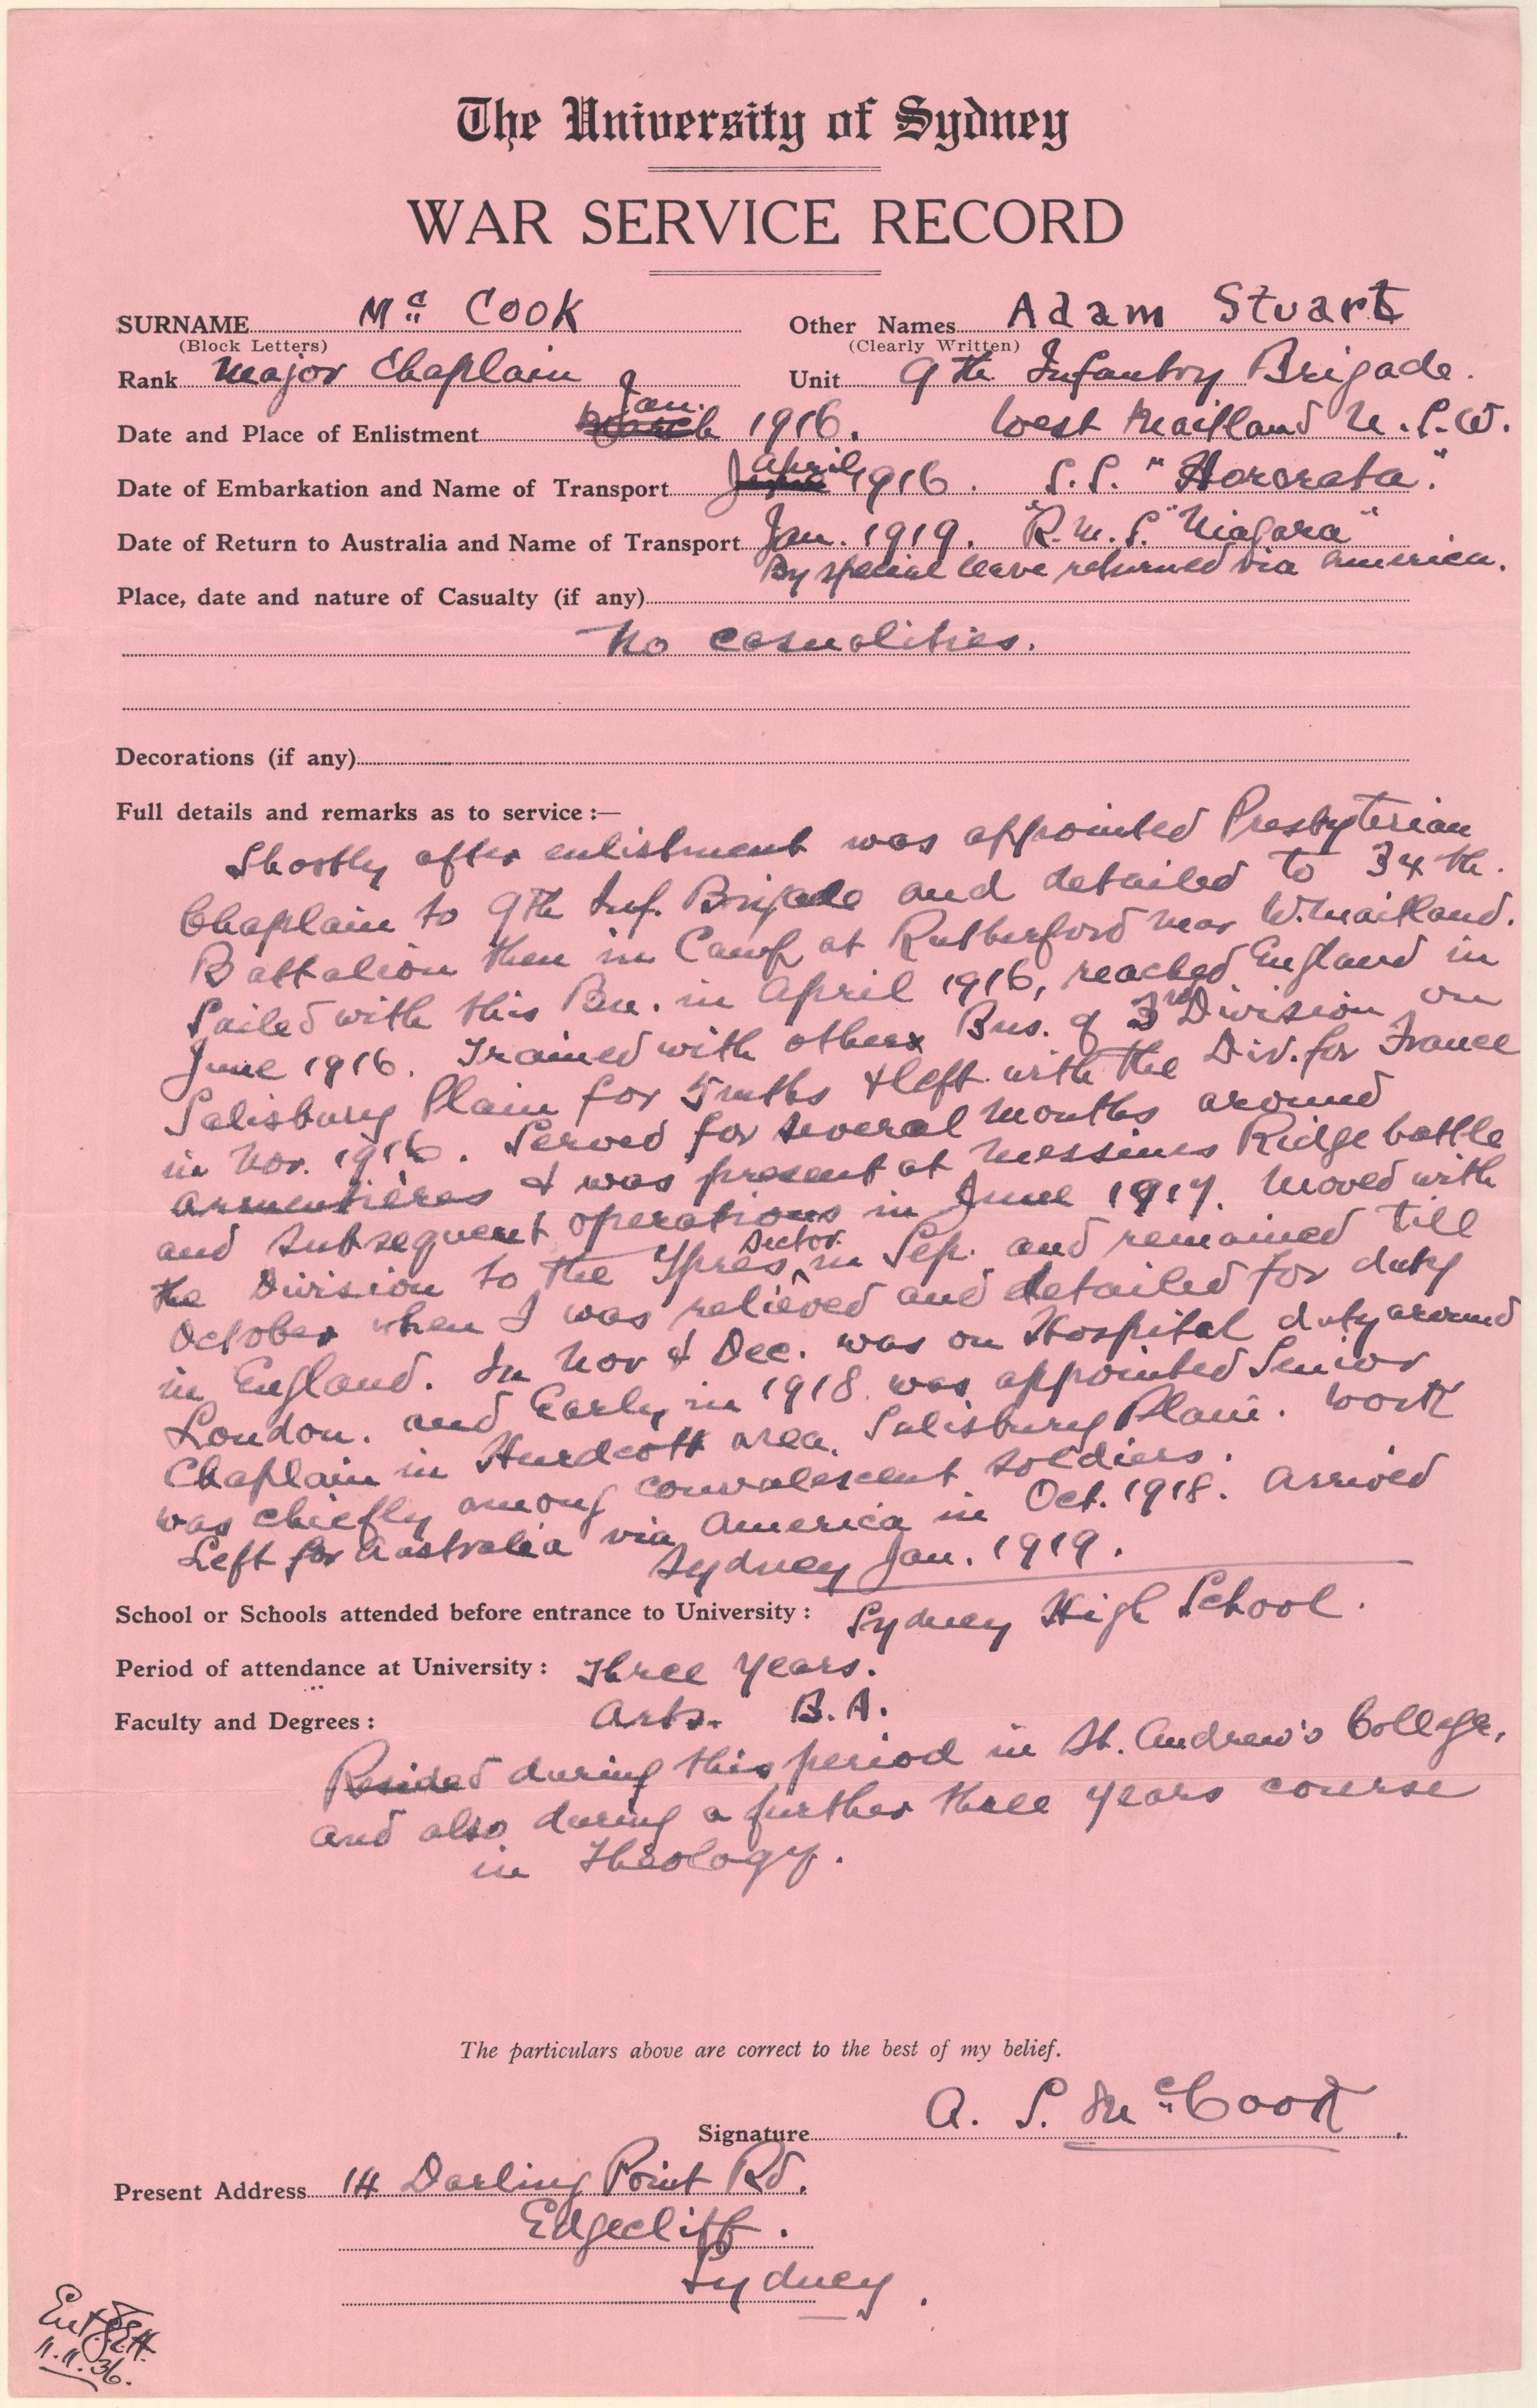 The University of Sydney
WAR SERVICE RECORD
SURNAME Mc COOK Other Names Adam Stuart
(Block Letters) (Clearly Written)
Rank Major Chaplain Unit 9th Infantry Brigade.
Jan.
Date and Place of Enlistment March 1916. West Maitland N.S.W.
April
Date of Embarkation and Name of Transport June 1916. S.S. "Hororata."
Date of Return to Australia and Name of Transport Jan. 1919. "R.M.S. "Niagara"
By special leave returned via America.
Place, date and nature of Casualty (if any)
No casualities.
Decorations (if any)
Full details and remarks as to service :—
Shortly after enlistment was appointed Presbyterian
Chaplain to 9th Inf. Brigade and detailed to 34th.
Battalion then in Camp at Rutherford near W. Maitland.
Sailed with this Bn. in April 1916, reached England in
June 1916. Trained with other Bns. of 3rd Division on
Salisbury Plain for 5 mths & left with the Div. for France
in Nov. 1916. Served for several months around
Armentières & was present at Messines Ridge battle
and subsequent operations in June 1917. Moved with
the Division to the Ypres sector in Sep. and remained till
October when I was relieved and detailed for duty
in England. In Nov & Dec. was on Hospital duty around
London. and Early in 1918 was appointed Senior
Chaplain in Hurdcott area. Salisbury Plain. Work
was chiefly among convalescent soldiers.
Left for Australia via America in Oct. 1918. Arrived
Sydney Jan. 1919.
School or Schools attended before entrance to University : Sydney High School.
Period of attendance at University : Three Years.
Faculty and Degrees : Arts. B.A.
Resided during this period in St. Andrew's College,
and also during a further three years course
in Theology.
The particulars above are correct to the best of my belief.
Signature A. S. McCook
Present Address 14 Darling Point Rd.
Edgecliff.
Sydney.
Ent.
11.11.36.